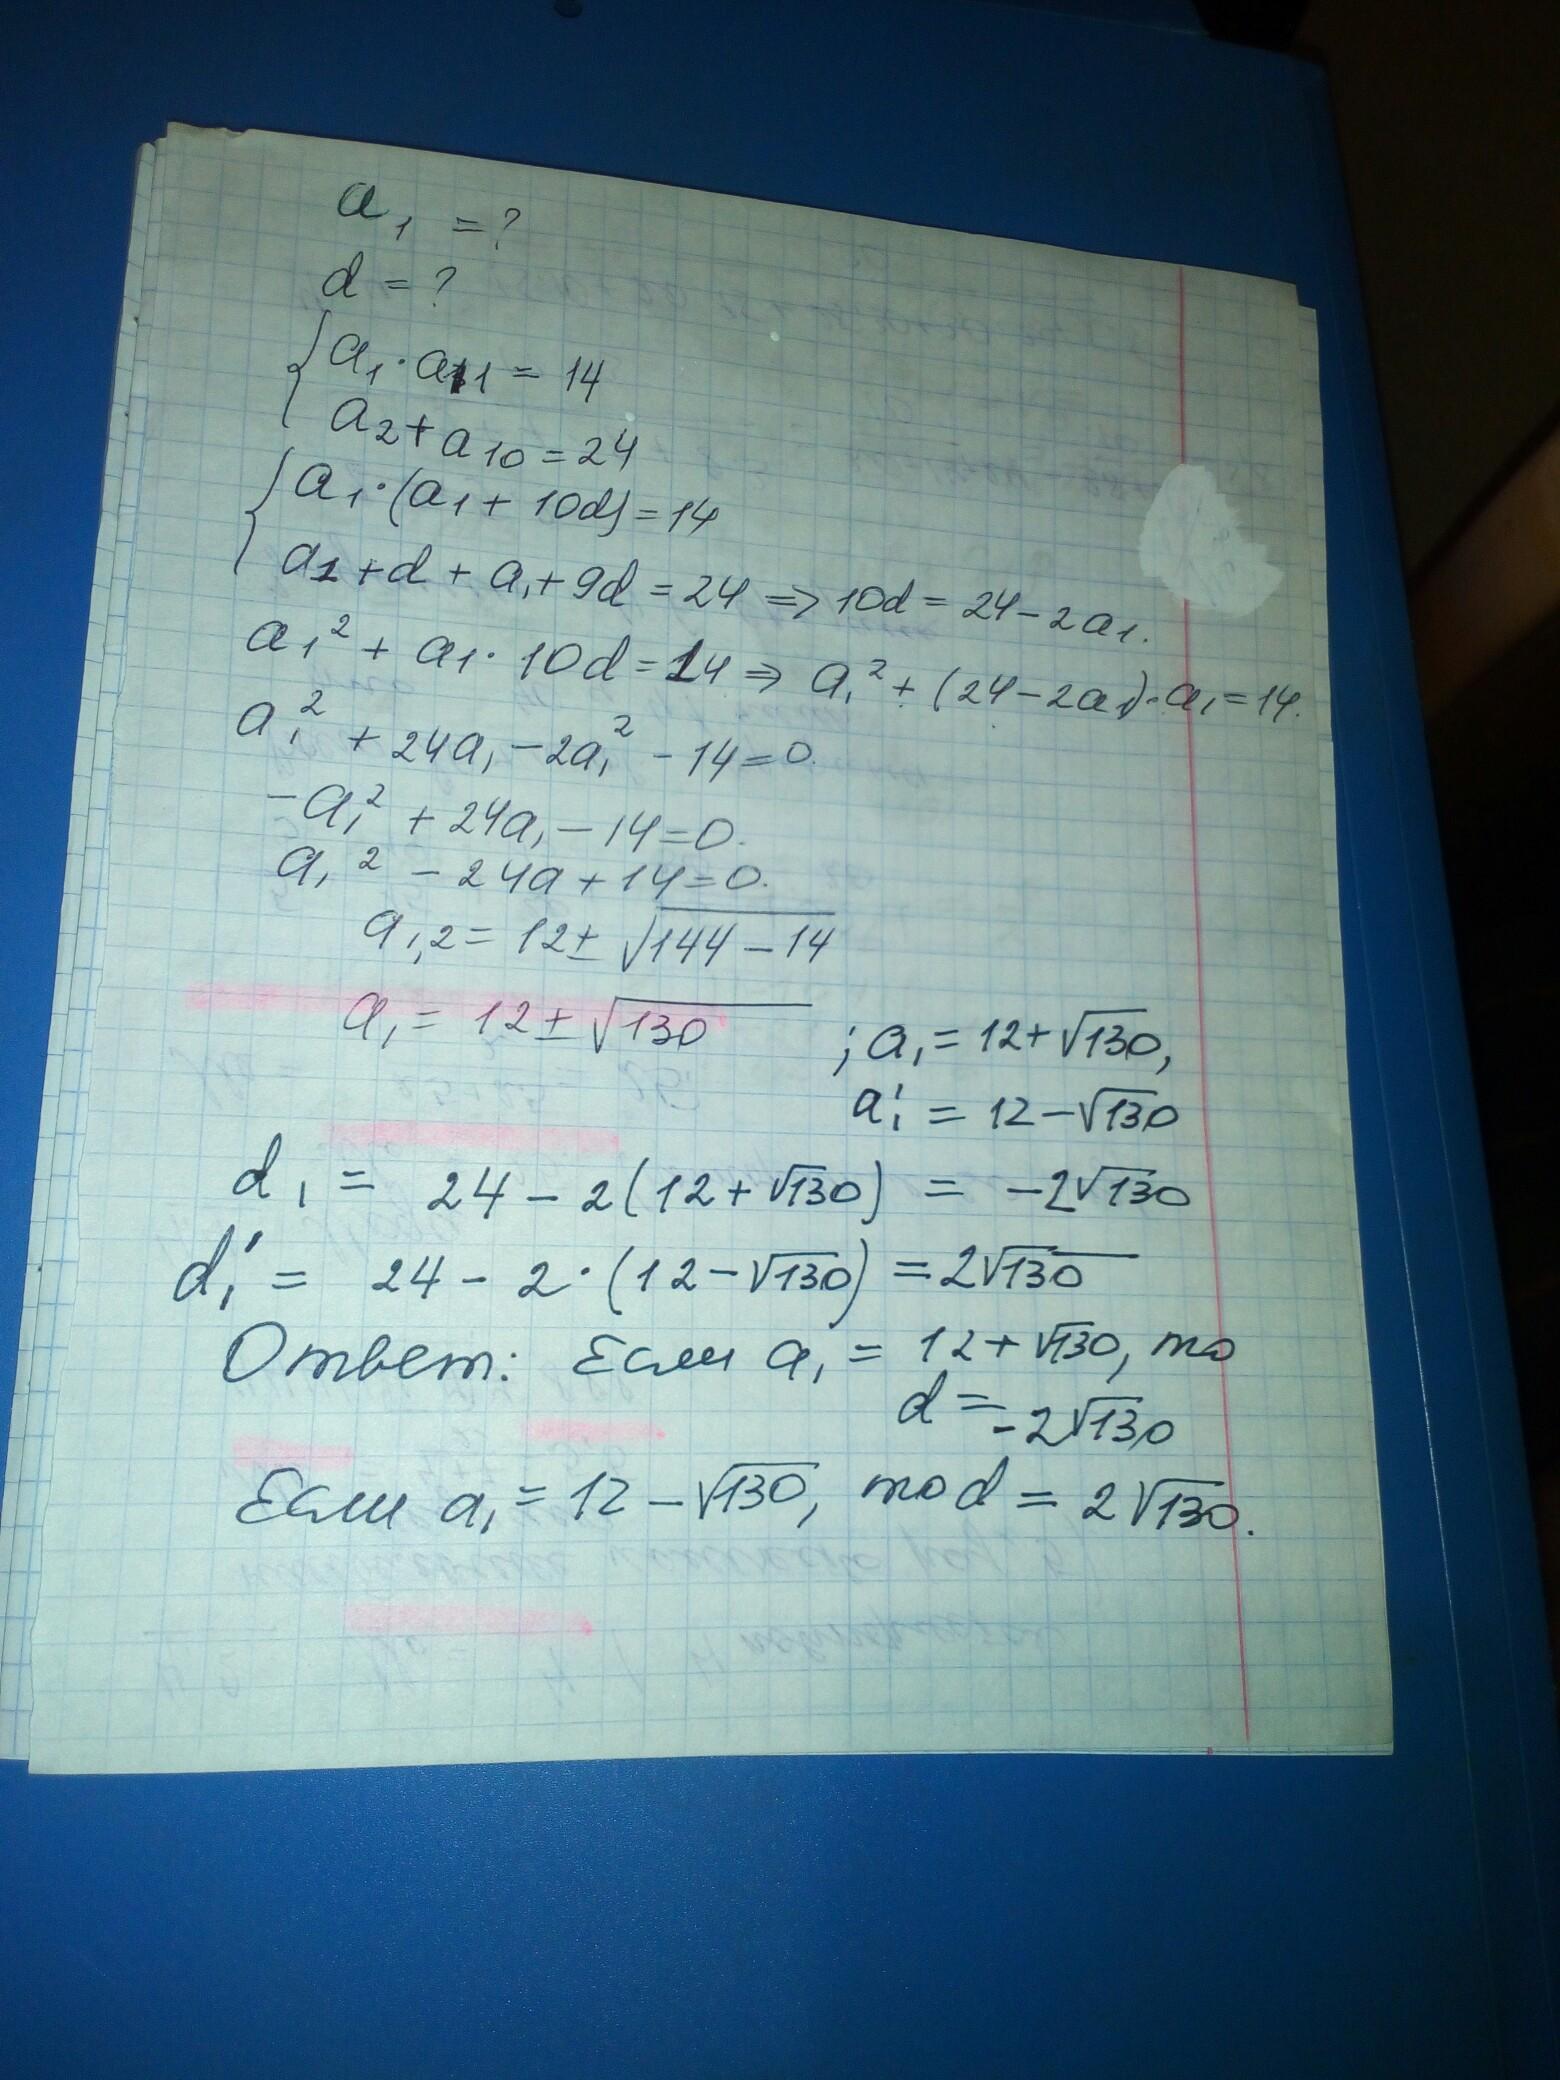 a₁ = ?
d = ?
{ a₁ · a₁₁ = 14
a₂ + a₁₀ = 24
{ a₁ · (a₁ + 10d) = 14
a₁ + d + a₁ + 9d = 24 ⇒ 10d = 24 - 2a₁.
a₁² + a₁ · 10d = 14 ⇒ a₁² + (24 - 2a₁) · a₁ = 14.
a₁² + 24a₁ - 2a₁² - 14 = 0.
-a₁² + 24a₁ - 14 = 0.
a₁² - 24a + 14 = 0.
a₁,₂ = 12 ± √144 - 14
a₁ = 12 ± √130 ; a₁ = 12 + √130,
a₁' = 12 - √130
d₁ = 24 - 2(12 + √130) = -2√130
d₁' = 24 - 2 · (12 - √130) = 2√130
Ответ: Если a₁ = 12 + √130, то
d = -2√130
Если a₁ = 12 - √130, то d = 2√130.